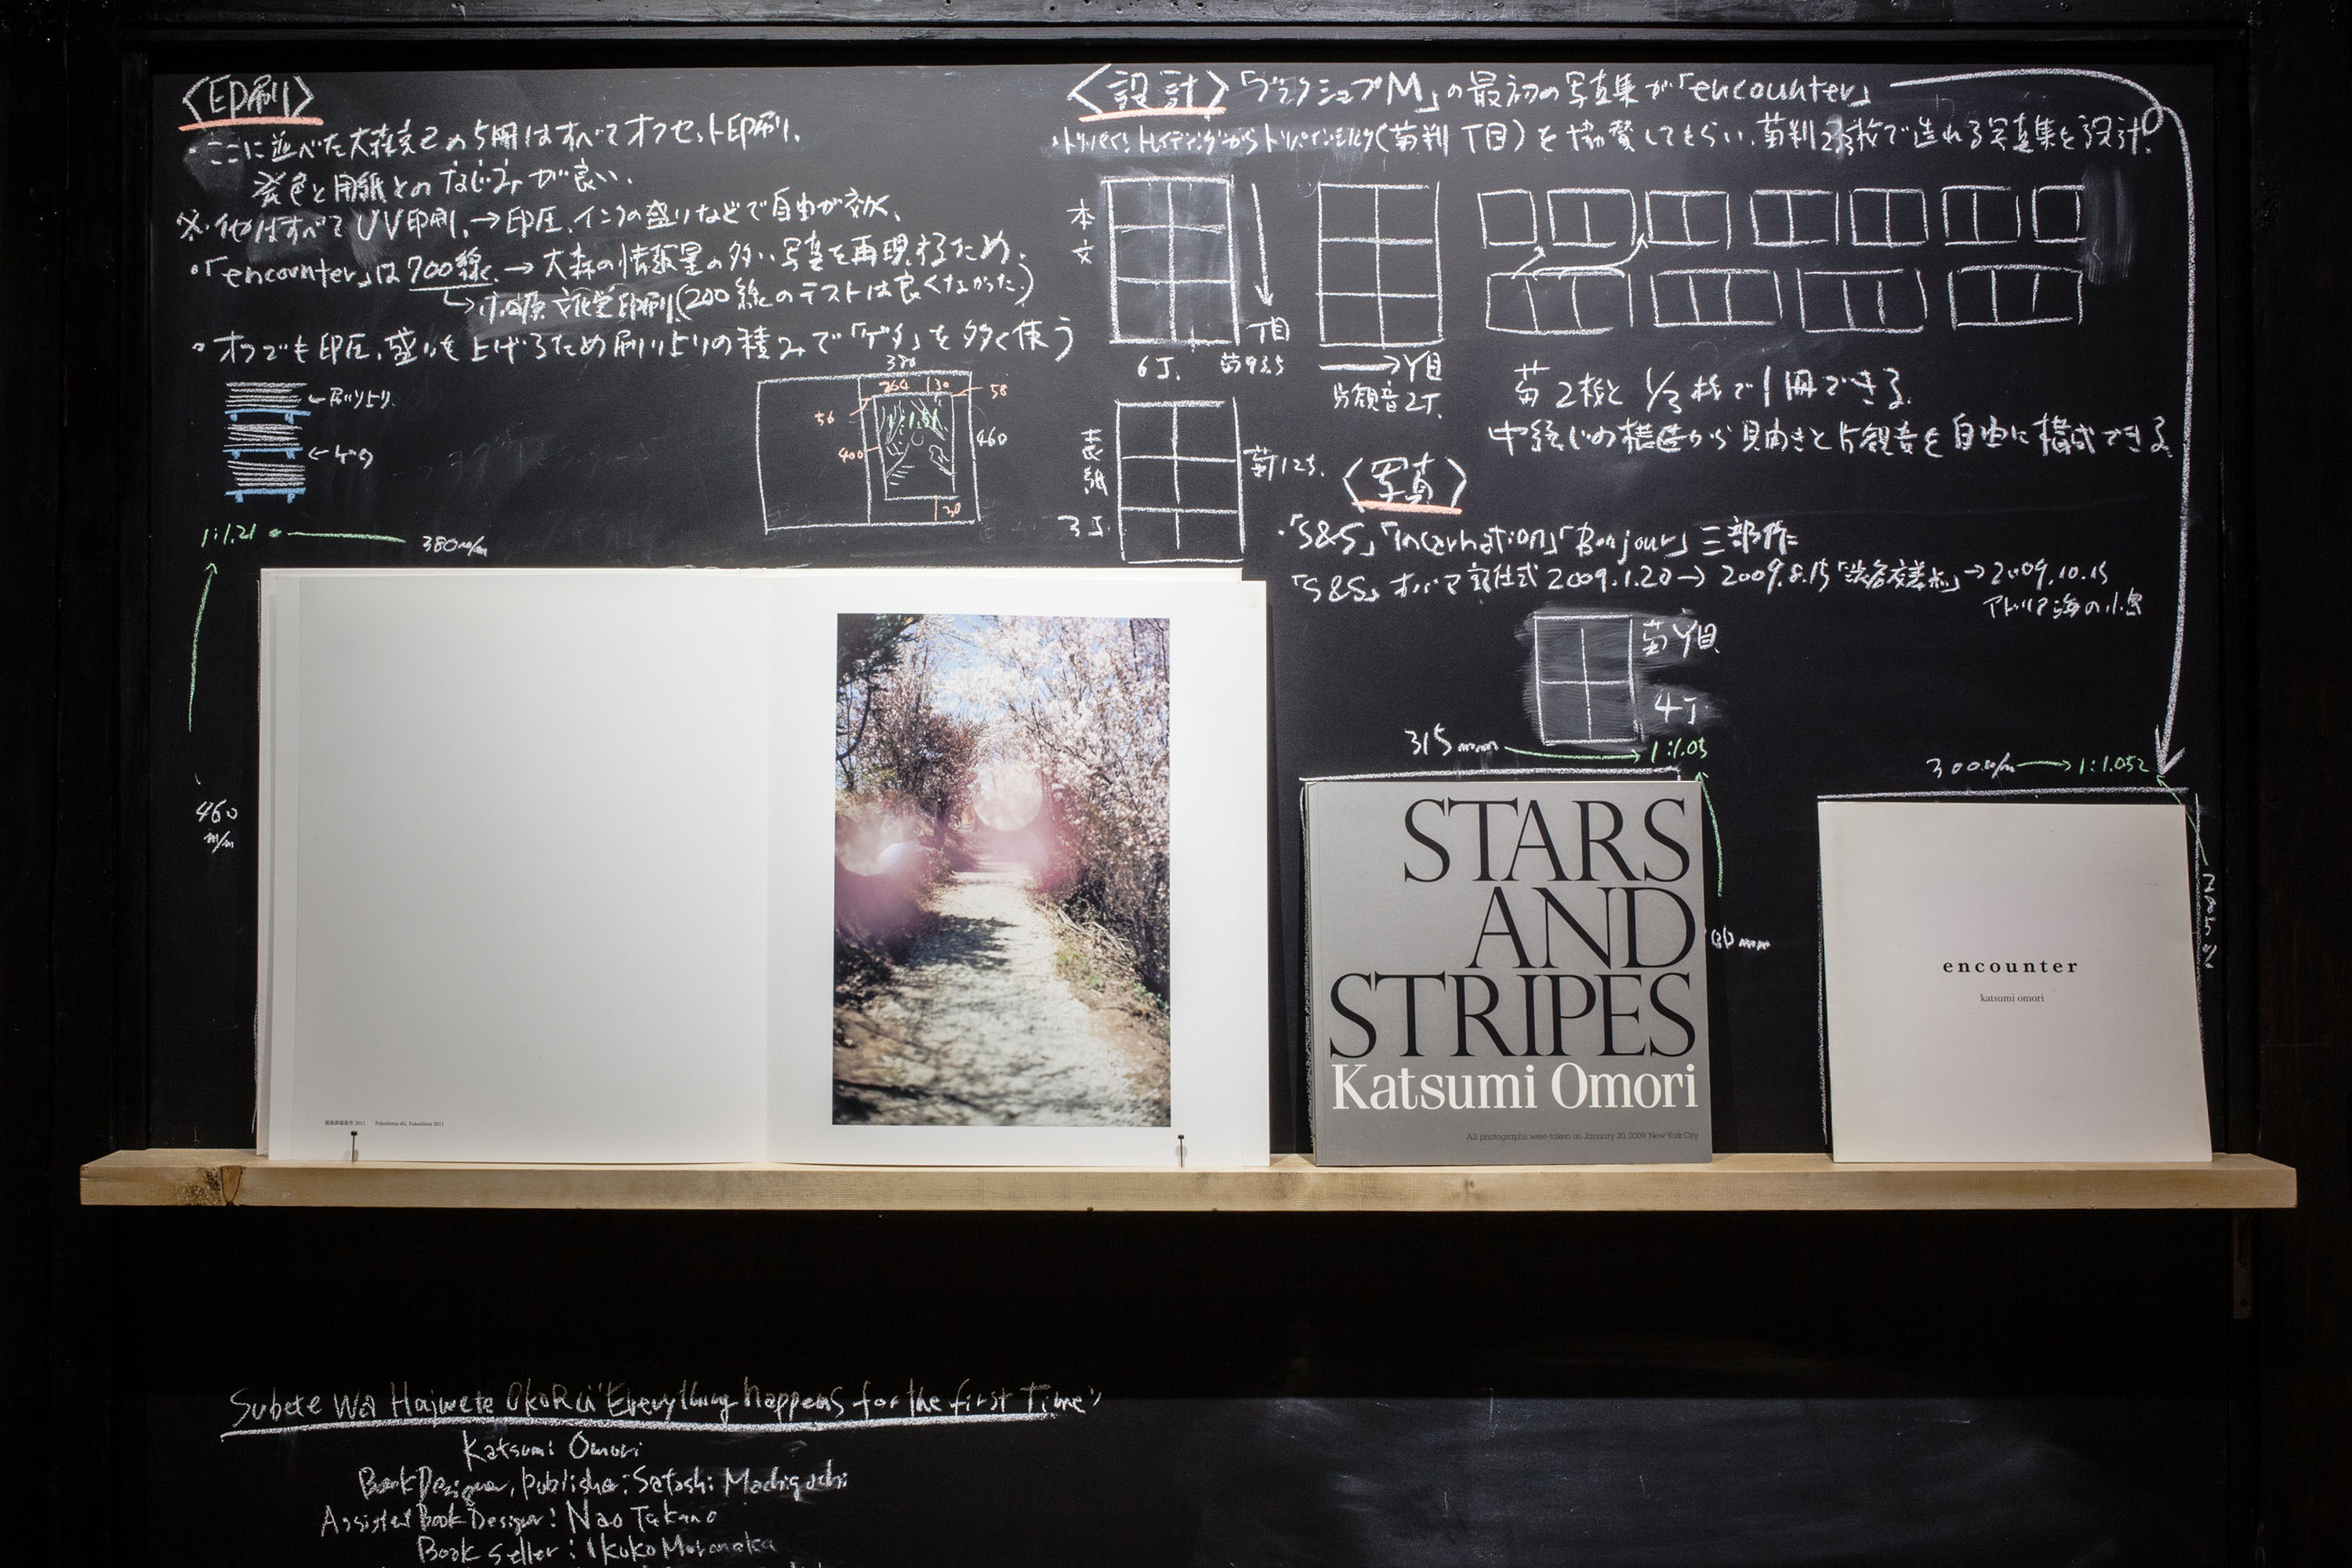 〈印刷〉
・ここに並べた大森克己の5冊はすべてオフセット印刷、
発色と用紙とのなじみが良い、
※他はすべてUV印刷、→印圧、インクの盛りなどで自由が効く、
・「encounter」は700線、→大森の情報量の多い写真を再現するため、
文化堂印刷(200線のテストは良くなかった、)
・オフでも印圧、盛りを上げるため刷り上りの積みで「ゲタ」を多く使う
←刷り上り
←ゲタ
320
264 30 58
56
400
460
30
〈設計〉「ブックショップM」の最初の写真集が「encounter」
(菊判T目)を協賛してもらい、菊判2⅓枚で造れる写真集を設計、
本文
T目
6丁、 菊93.5
→Y目
片観音2丁、
表紙
菊125、
3丁
菊2枚と1/3枚で1冊できる、
中綴じの構造から見開きと片観音を自由に構成できる、
〈写真〉
・「S&S」「Incarnation」「Bonjour」三部作
「S&S」オバマ就任式2009.1.20→2009.8.15「渋谷交差点」→2009.10.15
アドリア海の小島
菊Y目
4丁
1:1.21
380m/m
460
m/m
315mm
1:1.05
300m/m→1:1.052
福島県福島市 2011 Fukushima-shi, Fukushima 2011
STARS
AND
STRIPES
Katsumi Omori
All photographs were taken on January 20, 2009, New York City
encounter
katsumi omori
Subete Wa Hajimete Okoru "Everything happens for the first Time"
Katsumi Omori
Book Designer, Publisher: Satoshi Machiguchi
Assistant Book Designer: Nao Takano
Book Seller: Ikuko Muranaka